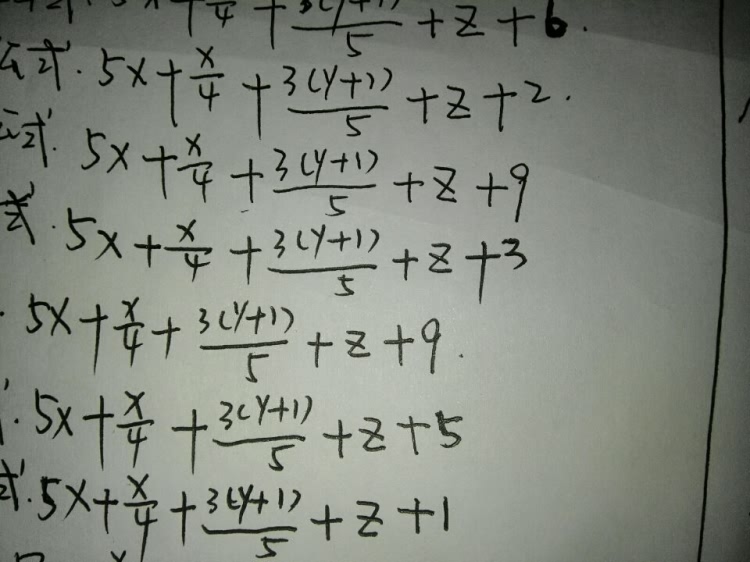 5x+x/4+3(y+1)/5+z+6.
公式.5x+x/4+3(y+1)/5+z+2.
公式.5x+x/4+3(y+1)/5+z+9
式.5x+x/4+3(y+1)/5+z+3
.5x+x/4+3(y+1)/5+z+9.
.5x+x/4+3(y+1)/5+z+5
式.5x+x/4+3(y+1)/5+z+1